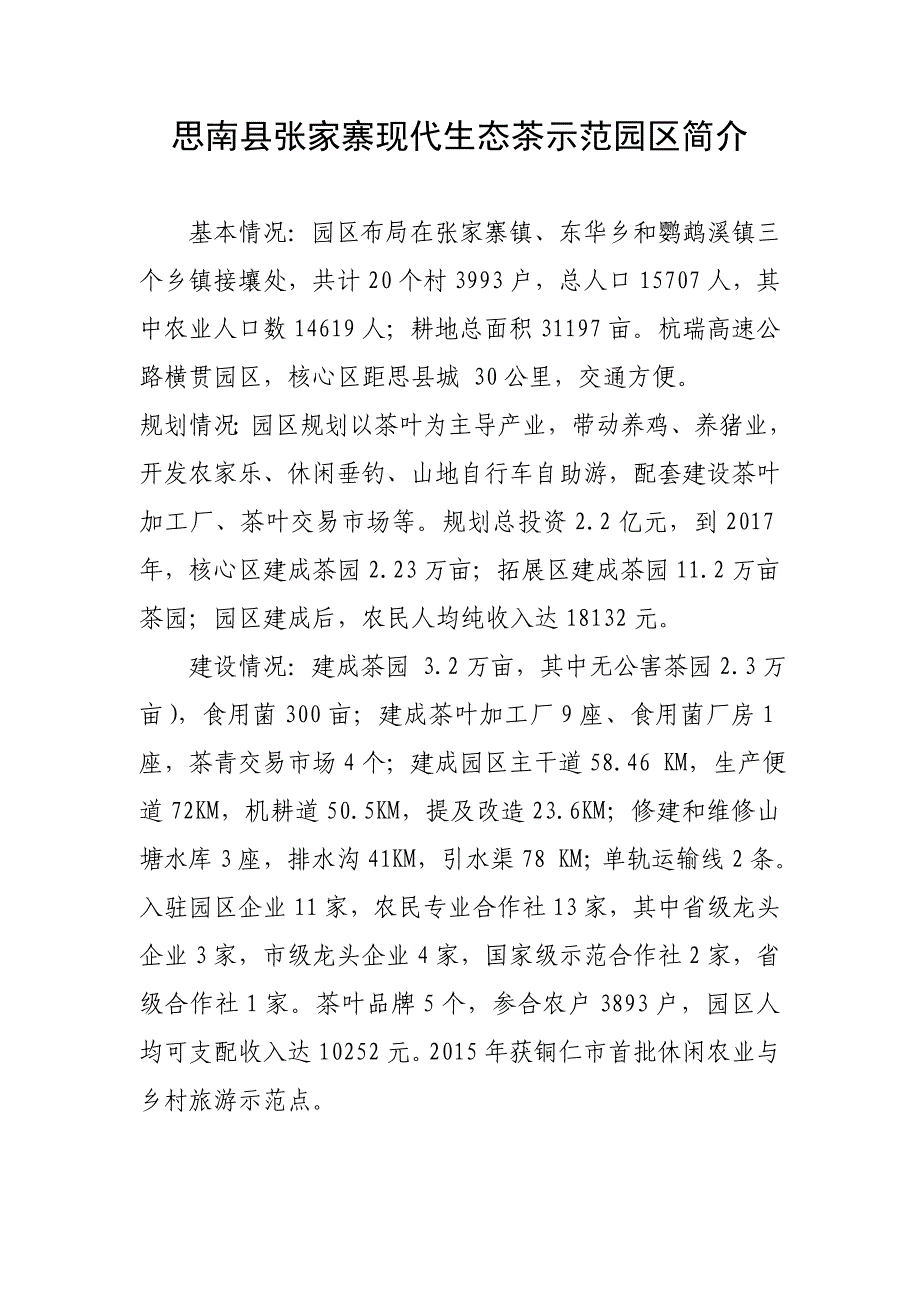 思南县张家寨现代生态茶示范园区简介
基本情况：园区布局在张家寨镇、东华乡和鹦鹉溪镇三
个乡镇接壤处，共计 20 个村 3993 户，总人口 15707 人，其
中农业人口数 14619 人；耕地总面积 31197 亩。杭瑞高速公
路横贯园区，核心区距思县城 30 公里，交通方便。
规划情况：园区规划以茶叶为主导产业，带动养鸡、养猪业，
开发农家乐、休闲垂钓、山地自行车自助游，配套建设茶叶
加工厂、茶叶交易市场等。规划总投资 2.2 亿元，到 2017
年，核心区建成茶园 2.23 万亩；拓展区建成茶园 11.2 万亩
茶园；园区建成后，农民人均纯收入达 18132 元。
建设情况：建成茶园 3.2 万亩，其中无公害茶园 2.3 万
亩），食用菌 300 亩；建成茶叶加工厂 9 座、食用菌厂房 1
座，茶青交易市场 4 个；建成园区主干道 58.46 KM，生产便
道 72KM，机耕道 50.5KM，提及改造 23.6KM；修建和维修山
塘水库 3 座，排水沟 41KM，引水渠 78 KM；单轨运输线 2 条。
入驻园区企业 11 家，农民专业合作社 13 家，其中省级龙头
企业 3 家，市级龙头企业 4 家，国家级示范合作社 2 家，省
级合作社 1 家。茶叶品牌 5 个，参合农户 3893 户，园区人
均可支配收入达 10252 元。2015 年获铜仁市首批休闲农业与
乡村旅游示范点。